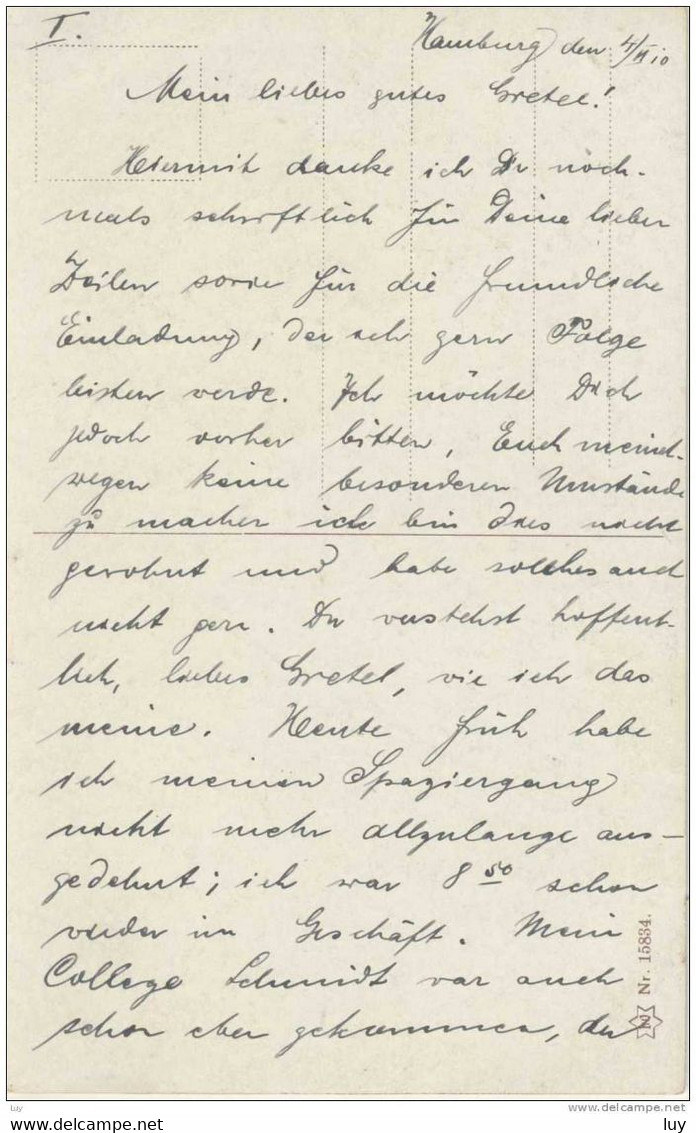 I.
Hamburg den 4/II 10
Mein liebes gutes Gretel!
Hiermit danke ich Dir noch-
mals schriftlich für Deine lieben
Zeilen sowie für die freundliche
Einladung, der ich gern Folge
leisten werde. Ich möchte Dich
jedoch vorher bitten, Euch meinet-
wegen keine besonderen Umstände
zu machen ich bin dies nicht
gewohnt und habe solches auch
nicht gern. Du verstehst hoffent-
lich, liebes Gretel, wie ich das
meine. Heute früh habe
ich meinen Spaziergang
nicht mehr allzulange aus-
gedehnt; ich war 8 50 schon
wieder im Geschäft. Mein
College Schmidt war auch
schon eben gekommen, der
Nr. 15834.
luy
delcampe.net
luy
luy